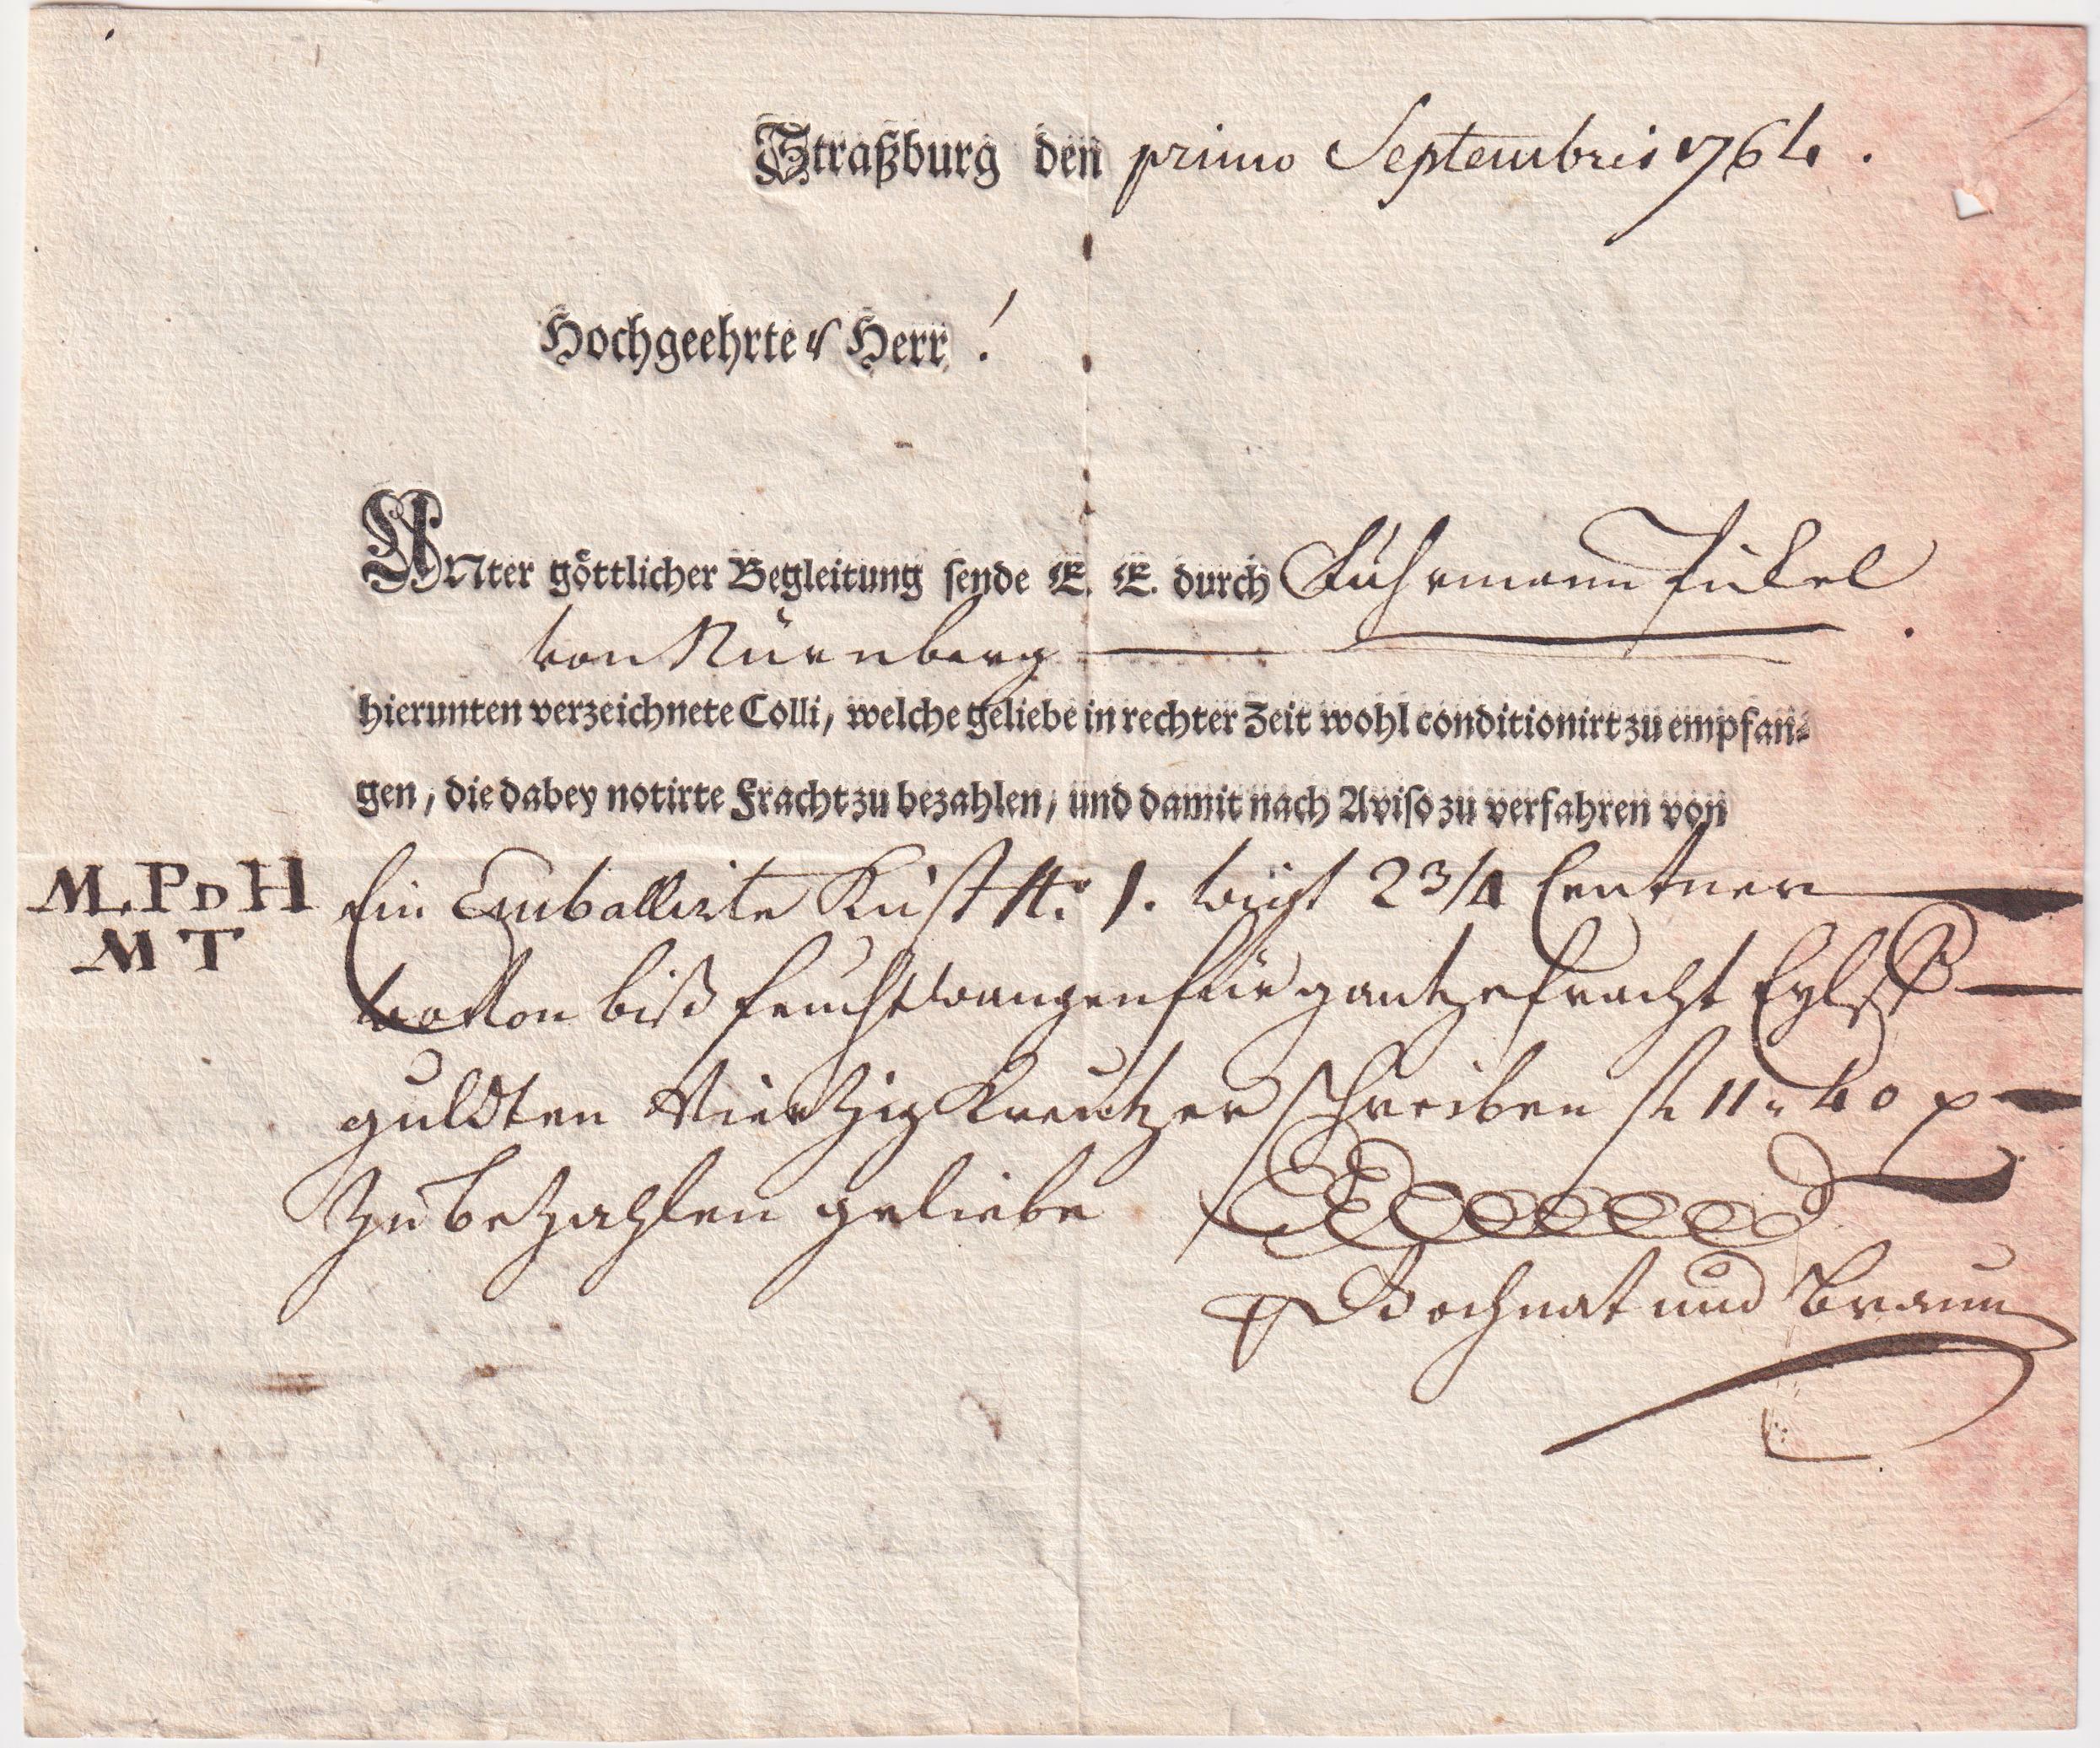 Straßburg den primo Septembris 1764.
Hochgeehrter Herr!
UNter göttlicher Begleitung sende E. E. durch Fuhrmann Fickel
von Nürnberg
hierunten verzeichnete Colli, welche geliebe in rechter Zeit wohl conditionirt zu empfan-
gen, die dabey notirte Fracht zu bezahlen, und damit nach Aviso zu verfahren von
M.PDH Ein Emballirte Kist N.° 1. wigt 2 3/4 Centner
MT
biß feuchtwangen für gantze fracht Eylff
gulden Vierzig Kreutzer schreiben fl 11 " 40 x
zu bezahlen geliebe
Bochnat und Braun